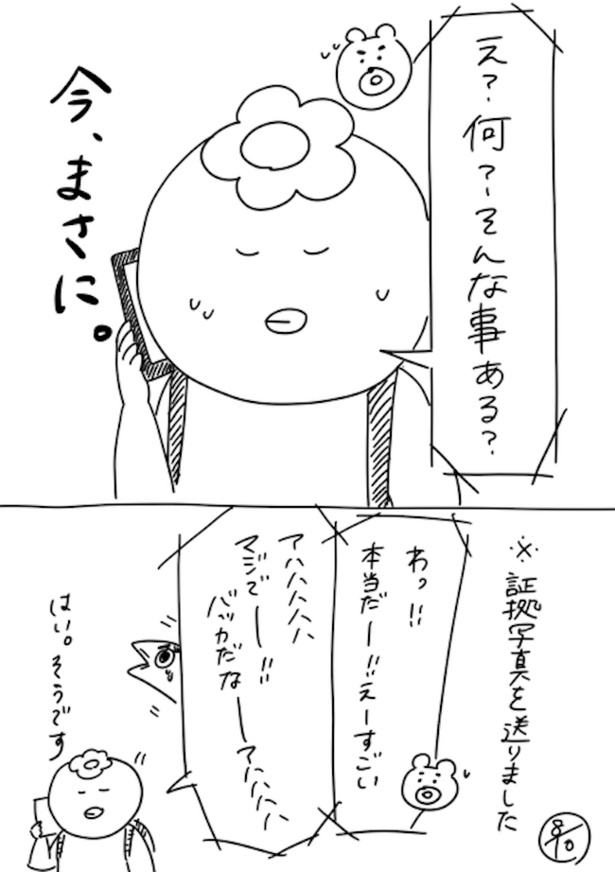 え?何?そんな事ある?
今、まさに。
※証拠写真を送りました
わっ!!
本当だー!!えーすごい
アハハハハハ
マジでー!!
バッカだなーアハハハハ
はい。そうです
8/10